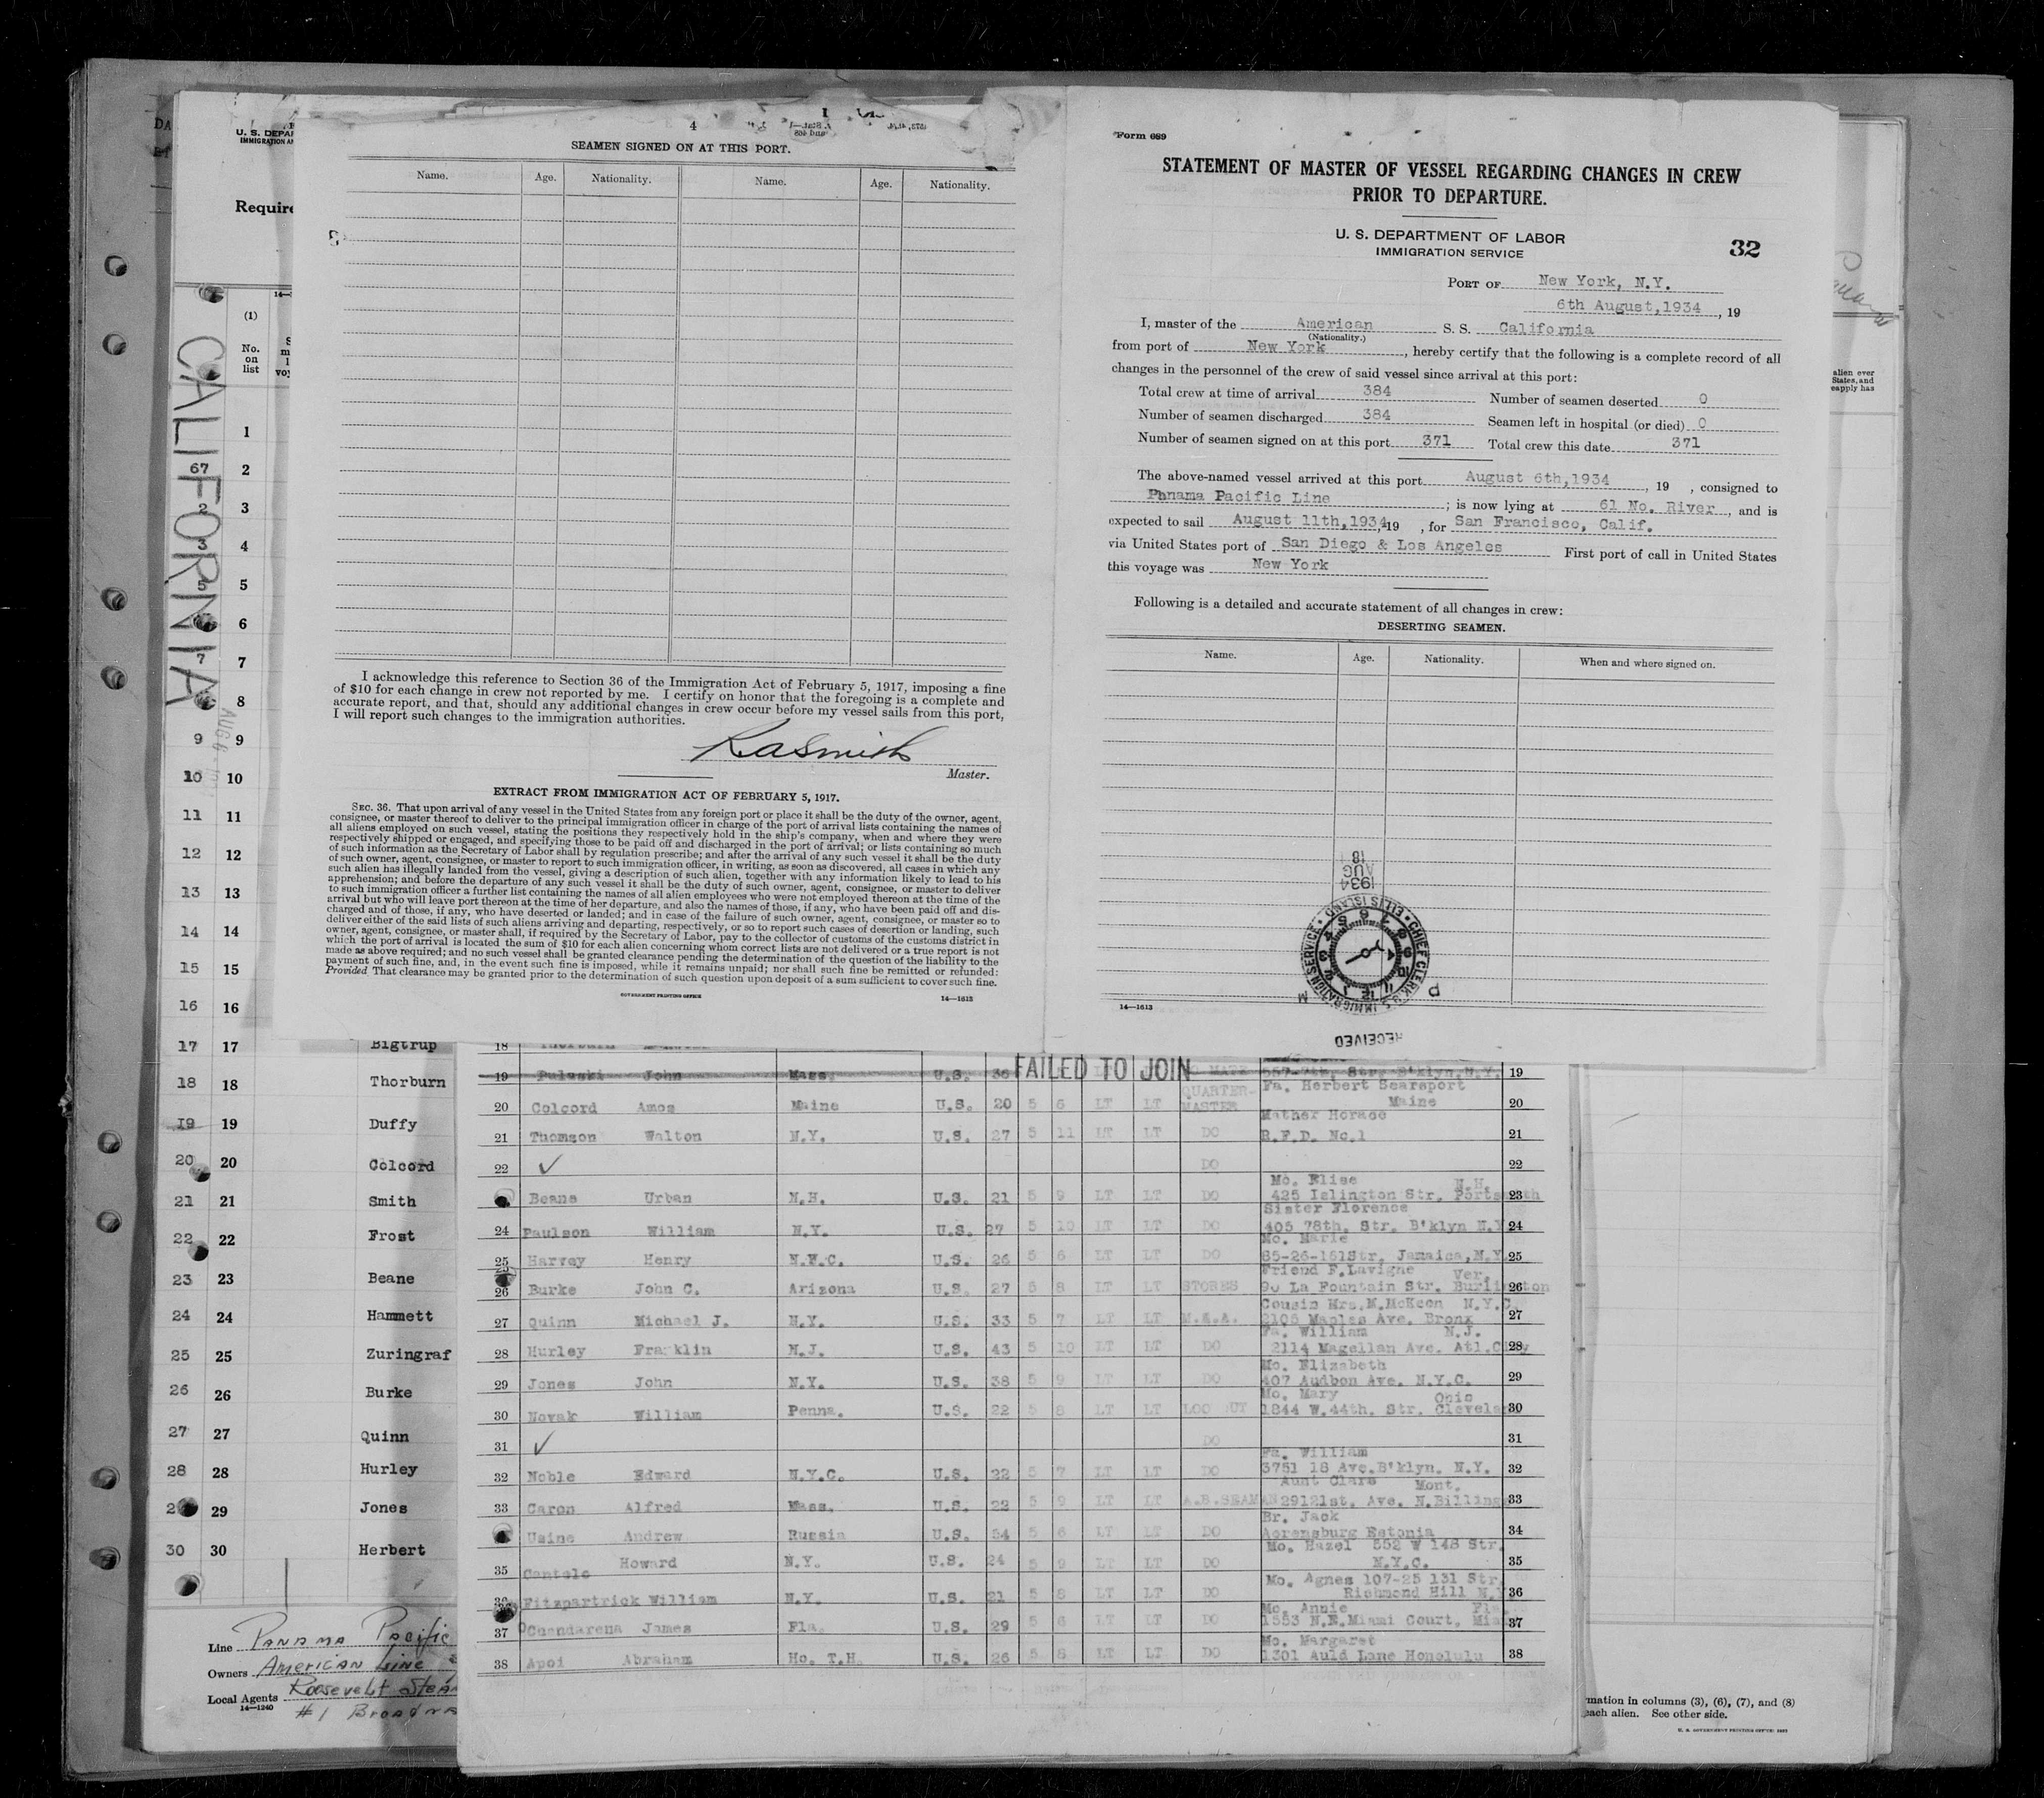 4
SEAMEN SIGNED ON AT THIS PORT.
Name. Age. Nationality. Name. Age. Nationality.
I acknowledge this reference to Section 36 of the Immigration Act of February 5, 1917, imposing a fine
of $10 for each change in crew not reported by me. I certify on honor that the foregoing is a complete and
accurate report, and that, should any additional changes in crew occur before my vessel sails from this port,
I will report such changes to the immigration authorities.
RaSmith
Master.
EXTRACT FROM IMMIGRATION ACT OF FEBRUARY 5, 1917.
SEC. 36. That upon arrival of any vessel in the United States from any foreign port or place it shall be the duty of the owner, agent,
consignee, or master thereof to deliver to the principal immigration officer in charge of the port of arrival lists containing the names of
all aliens employed on such vessel, stating the positions they respectively hold in the ship's company, when and where they were
respectively shipped or engaged, and specifying those to be paid off and discharged in the port of arrival; or lists containing so much
of such information as the Secretary of Labor shall by regulation prescribe; and after the arrival of any such vessel it shall be the duty
of such owner, agent, consignee, or master to report to such immigration officer, in writing, as soon as discovered, all cases in which any
such alien has illegally landed from the vessel, giving a description of such alien, together with any information likely to lead to his
apprehension; and before the departure of any such vessel it shall be the duty of such owner, agent, consignee, or master to deliver
to such immigration officer a further list containing the names of all alien employees who were not employed thereon at the time of the
arrival but who will leave port thereon at the time of her departure, and also the names of those, if any, who have been paid off and dis-
charged and of those, if any, who have deserted or landed; and in case of the failure of such owner, agent, consignee, or master so to
deliver either of the said lists of such aliens arriving and departing, respectively, or so to report such cases of desertion or landing, such
owner, agent, consignee, or master shall, if required by the Secretary of Labor, pay to the collector of customs of the customs district in
which the port of arrival is located the sum of $10 for each alien concerning whom correct lists are not delivered or a true report is not
made as above required; and no such vessel shall be granted clearance pending the determination of the question of the liability to the
payment of such fine, and, in the event such fine is imposed, while it remains unpaid; nor shall such fine be remitted or refunded:
Provided That clearance may be granted prior to the determination of such question upon deposit of a sum sufficient to cover such fine.
GOVERNMENT PRINTING OFFICE 14—1613
Form 689
STATEMENT OF MASTER OF VESSEL REGARDING CHANGES IN CREW
PRIOR TO DEPARTURE.
U. S. DEPARTMENT OF LABOR
IMMIGRATION SERVICE
32
PORT OF New York, N.Y.
6th August,1934, 19
I, master of the American S. S. California
(Nationality.)
from port of New York, hereby certify that the following is a complete record of all
changes in the personnel of the crew of said vessel since arrival at this port:
Total crew at time of arrival 384 Number of seamen deserted 0
Number of seamen discharged 384 Seamen left in hospital (or died) 0
Number of seamen signed on at this port 371 Total crew this date 371
The above-named vessel arrived at this port August 6th,1934, 19 , consigned to
Panama Pacific Line; is now lying at 61 No. River, and is
expected to sail August 11th,1934,19 , for San Francisco, Calif.
via United States port of San Diego & Los Angeles First port of call in United States
this voyage was New York
Following is a detailed and accurate statement of all changes in crew:
DESERTING SEAMEN.
Name. Age. Nationality. When and where signed on.
1934
AUG
18
CHIEF CLERK U.S. IMMIGRATION SERVICE • ELLIS ISLAND
P M
RECEIVED
14—1613
U. S. DEPA
IMMIGRATION AN
Require
CALIFORNIA
AUG 6
(1)
No.
on
list
1
67 2
2 3
3 4
5 5
6
7 7
8
9 9
10 10
11 11
12 12
13 13
14 14
15 15
16 16
17 17 Bigtrup
18 18 Thorburn
19 19 Duffy
20 20 Colcord
21 21 Smith
22 22 Frost
23 23 Beane
24 24 Hammett
25 25 Zuringraf
26 26 Burke
27 27 Quinn
28 28 Hurley
2 29 Jones
30 30 Herbert
Line Panama Pacific
Owners American Line
Local Agents Roosevelt Stea
14—1240
#1 Broadwa
18
FAILED TO JOIN
19 Puleski John Mass. U.S. 36 557-7th. Str. B'klyn,N.Y. 19
20 Colcord Amos Maine U.S. 20 5 6 LT LT QUARTER-MASTER Fa. Herbert Searsport Maine 20
21 Thomson Walton N.Y. U.S. 27 5 11 LT LT DO Mather Horace R.F.D. No.1 21
22 ✓ DO 22
Beane Urban N.H. U.S. 21 5 9 LT LT DO Mo. Elise N.H. 425 Islington Str. Portsmouth 23
24 Paulson William N.Y. U.S. 27 5 10 LT LT DO Sister Florence 405 78th. Str. B'klyn N.Y 24
25 Harvey Henry N.Y.C. U.S. 26 5 6 LT LT DO Mo. Marie 85-26-161Str. Jamaica,N.Y. 25
26 Burke John C. Arizona U.S. 27 5 8 LT LT STORES Friend F.Lavigne Ver. 90 La Fountain Str. Burlington 26
27 Quinn Michael J. N.Y. U.S. 33 5 7 LT LT M.A.A. Cousin Mrs.M.McKeon N.Y.C. 2105 Maples Ave. Bronx 27
28 Hurley Franklin N.J. U.S. 43 5 10 LT LT DO Fa. William N.J. 2114 Magellan Ave. Atl.City 28
29 Jones John N.Y. U.S. 38 5 9 LT LT DO Mo. Elizabeth 407 Audbon Ave. N.Y.C. 29
30 Novak William Penna. U.S. 22 5 8 LT LT LOO OUT Mo. Mary Ohio 1844 W.44th. Str. Clevela 30
31 ✓ DO 31
32 Noble Edward N.Y.C. U.S. 22 5 7 LT LT DO Fa. William 3751 18 Ave.B'klyn. N.Y. 32
33 Caron Alfred Mass. U.S. 22 5 9 LT LT A.B.SEAMAN Aunt Clara Mont. 29121st. Ave. N.Billing 33
Usine Andrew Russia U.S. 34 5 6 LT LT DO Br. Jack Aorensburg Estonia 34
35 Cantelo Howard N.Y. U.S. 24 5 9 LT LT DO Mo. Hazel 552 W 148 Str. N.Y.C. 35
36 Fitzpartrick William N.Y. U.S. 21 5 8 LT LT DO Mo. Agnes 107-25 131 Str. Richmond Hill N.Y 36
37 Cuendarena James Fla. U.S. 29 5 6 LT LT DO Mo. Annie Fla. 1553 N.E.Miami Court. Mia 37
38 Apoi Abraham Ho. T.H. U.S. 26 5 8 LT LT DO Mo. Margaret 1301 Auld Lane Honolulu 38
alien over
States, and
eapply has
mation in columns (3), (6), (7), and (8)
each alien. See other side.
U. S. GOVERNMENT PRINTING OFFICE: 1927